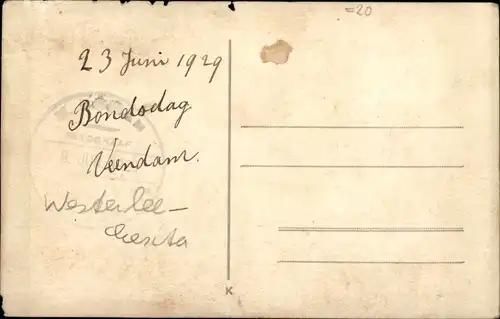 =20
23 Juni 1929
Bondsdag
Veendam.
Westerlee-
K